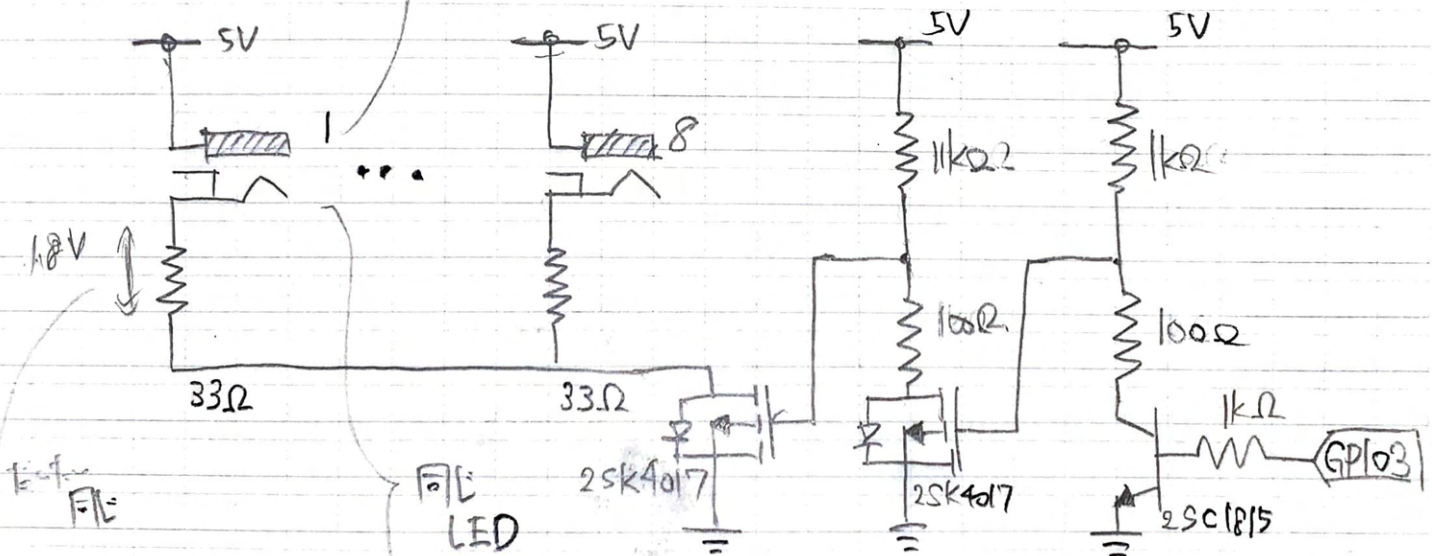 5V
5V
5V
5V
1
...
8
1kΩ
1.8V
100Ω
100Ω
33Ω
33Ω
1kΩ
GPIO3
2SK4017
2SK4017
2SC1815
同じ
同じ
LED